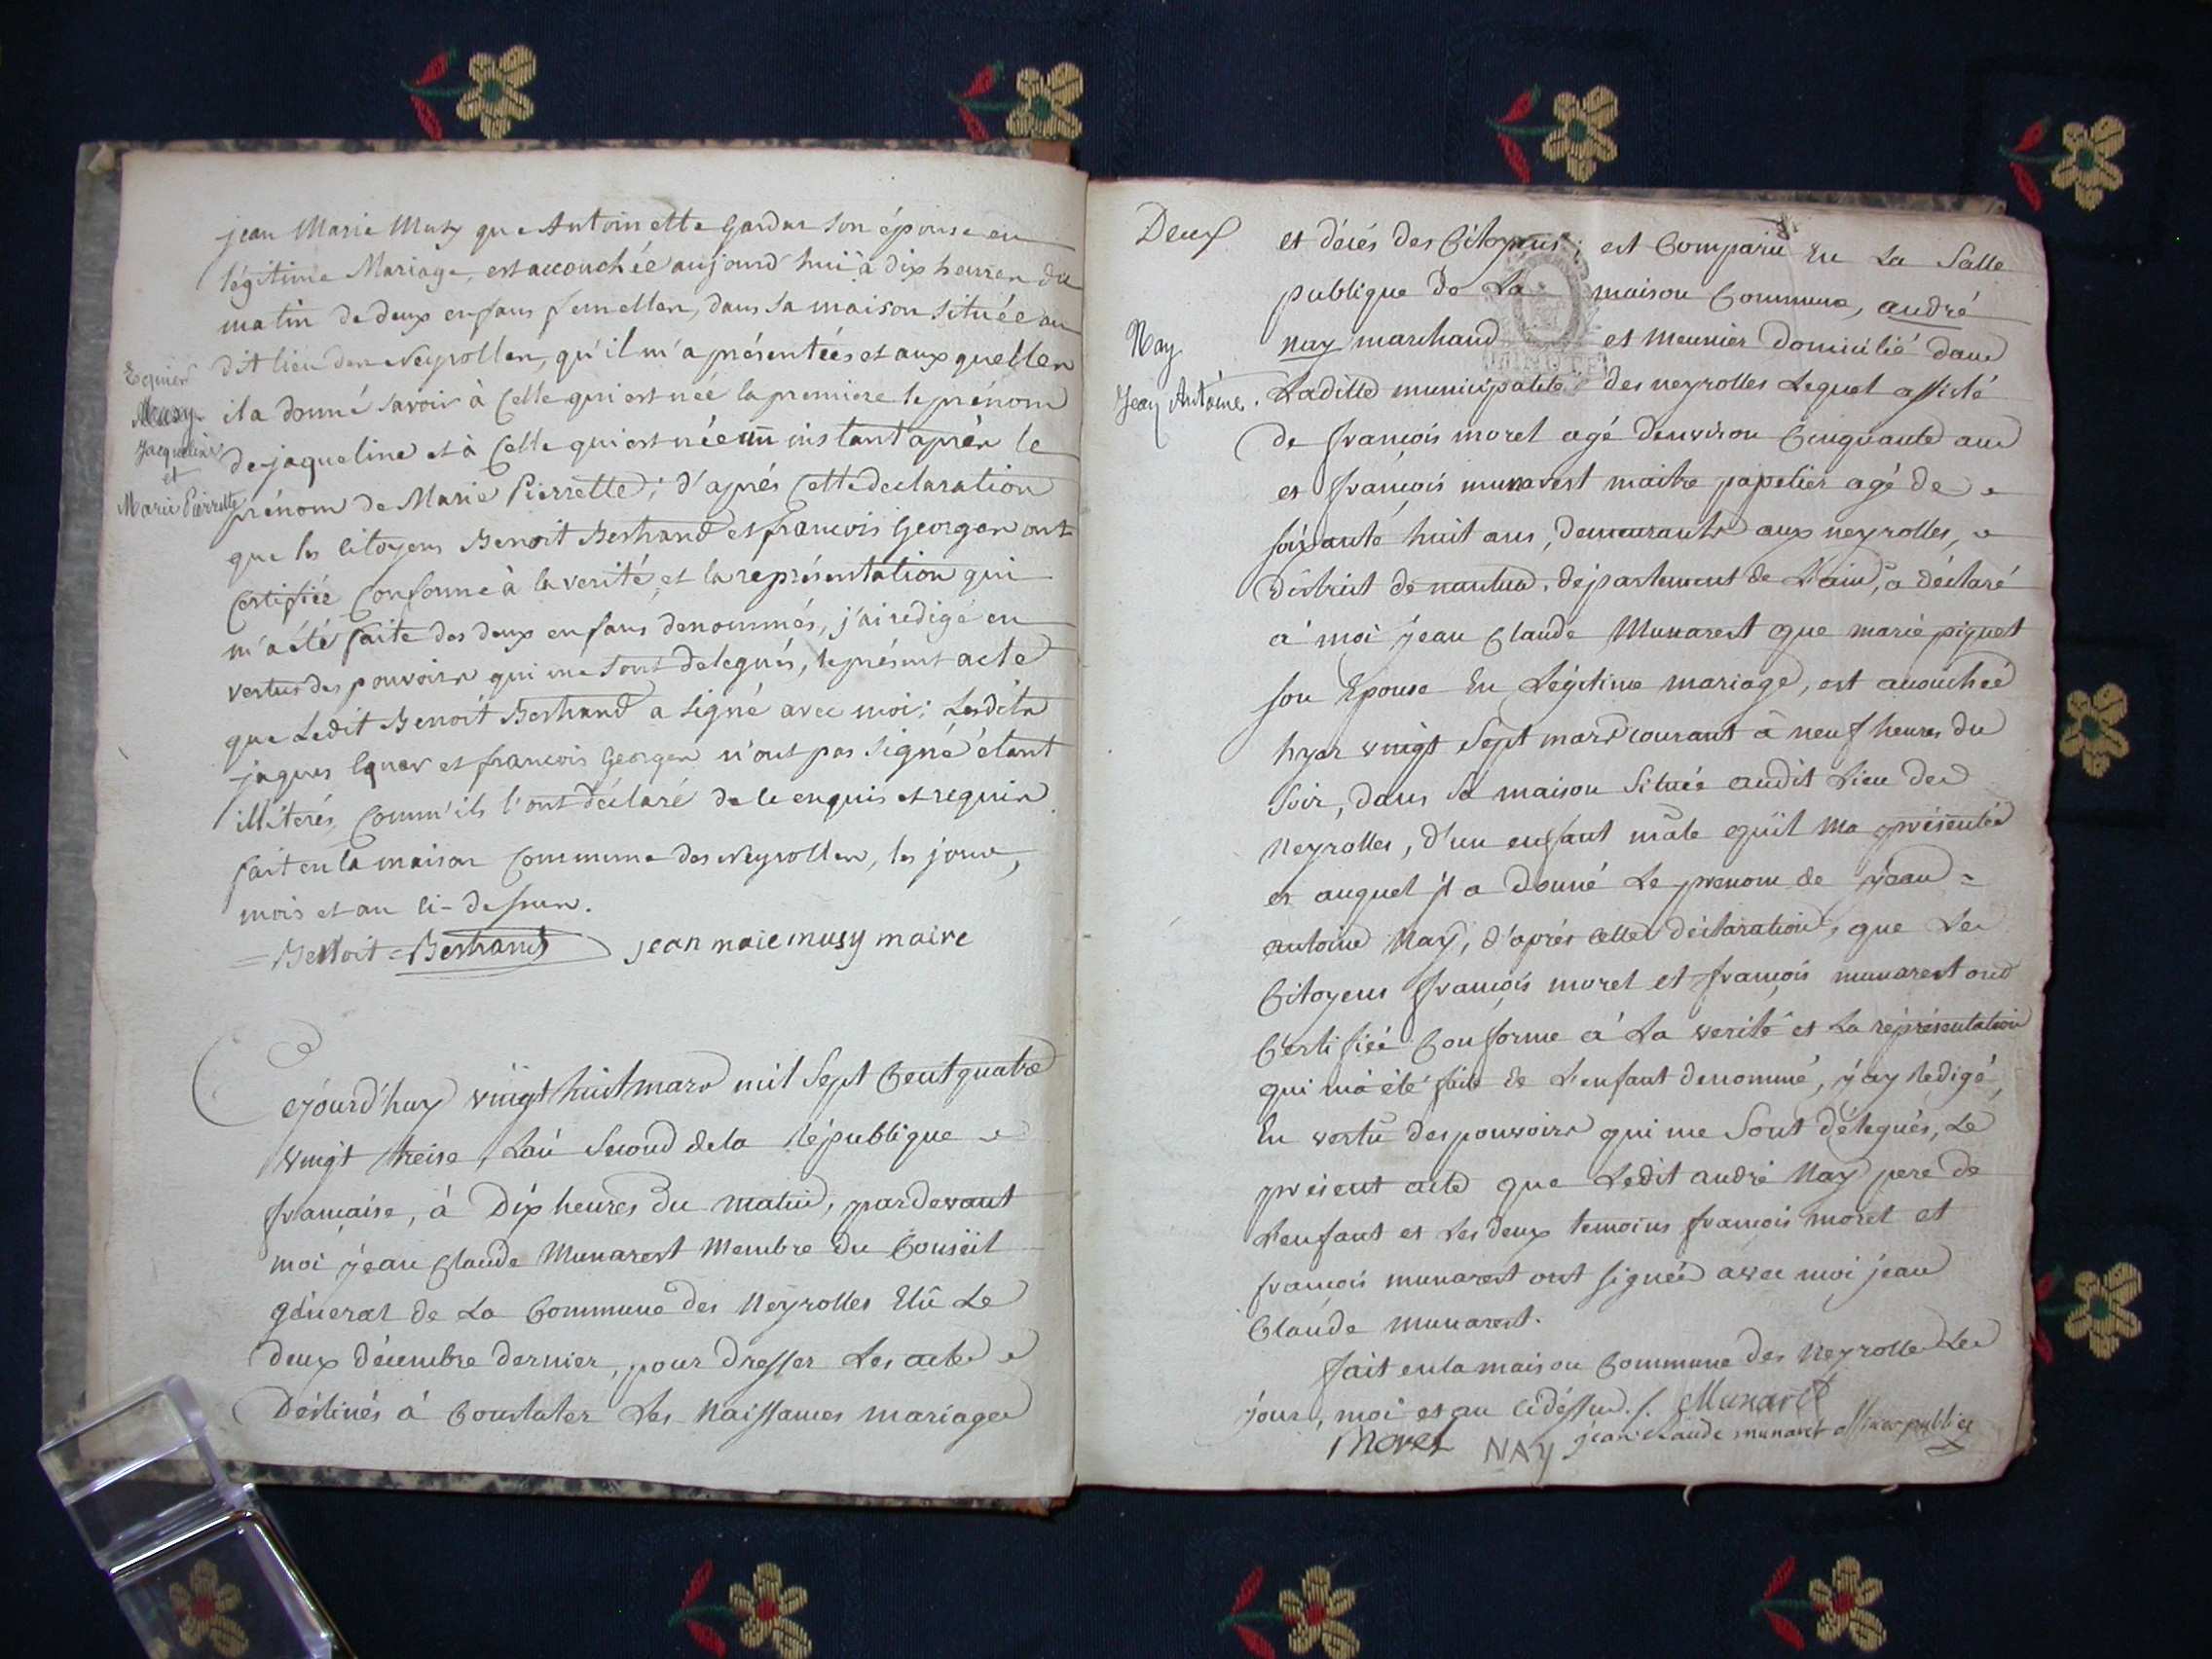 jean Marie Musy que Antoinette Gardar son épouse en
légitime Mariage, est accouchée aujourd'hui à dix heures du
matin de deux enfans femelles, dans sa maison située au
dit lieu des Neyrolles, qu'il m'a présentées et aux quelles
il a donné savoir à Celle qui est née la premiere le prénom
de jaqueline et à Celle qui est née un instant après le
prénom de Marie Pierrette; d'après Cette declaration
que les Citoyens Benoit Bertrand et francois Georges ont
Certifiée Conforme à la verité, et la représentation qui
m'a été faite des deux enfans denommés, j'ai redigé en
vertus des pouvoirs qui me sont delegués, le présent acte
que Ledit Benoit Bertrand a signé avec moi; Lesdits
jaques et francois Georges n'ont pas signé étant
illiterés, Comm'ils l'ont déclaré de ce enquis et requis
fait en la maison Commune des Neyrolles, les jour,
mois et an ci-dessus.
Benoit Bertrand jean maie musy maire
Musy
Jacqueline
et
Marie Pierrette
Cejourd'huy vingt huit mars mil Sept Cent quatre
vingt treise, L'an Second de la république
française, à Dix heures du matin, pardevant
moi jean Claude Munarest Membre du Conseil
géneral de La Commune des Neyrolles Elû Le
deux décembre dernier, pour dresser Les actes
Déstinés à Constater Les Naissances mariages
Deux
et décés des Citoyens; est Comparu En La Salle
publique de La maison Commune, andré
nay marchand et Meunier domicilié dans
Laditte municipalité des neyrolles Lequel assisté
de françois morel agé d'environ Cinquante ans
et françois munarest maitre papetier agé de
soixante huit ans, demeurants aux neyrolles,
district de nantua, département de L'ain, a déclaré
à moi jean Claude Munarest que marie piquet
son Epouse En Légitime mariage, est acouchée
hyer vingt Sept mars courant à neuf heures du
soir, dans sa maison Située audit Lieu des
Neyrolles, d'un enfant mâle qu'il ma présentée
et auquel il a donné Le prenom de jean =
antoine Nay, d'après cette déclaration, que Les
Citoyens françois morel et françois munarest ont
Certifiée Conforme à La verité et La représentation
qui m'a été faite de L'enfant denommé, j'ay Redigé,
En vertû des pouvoirs qui me Sont délegués, Le
présent acte que Ledit andré Nay pere de
L'enfant et Les deux temoins françois morel et
françois munarest ont signée avec moi jean
Claude munarest.
fait en la maison Commune des Neyrolles Les
jour, moi et an cidéssus. Munaret
Morel NAY jean Claude munaret officier public
Nay
Jean Antoine.